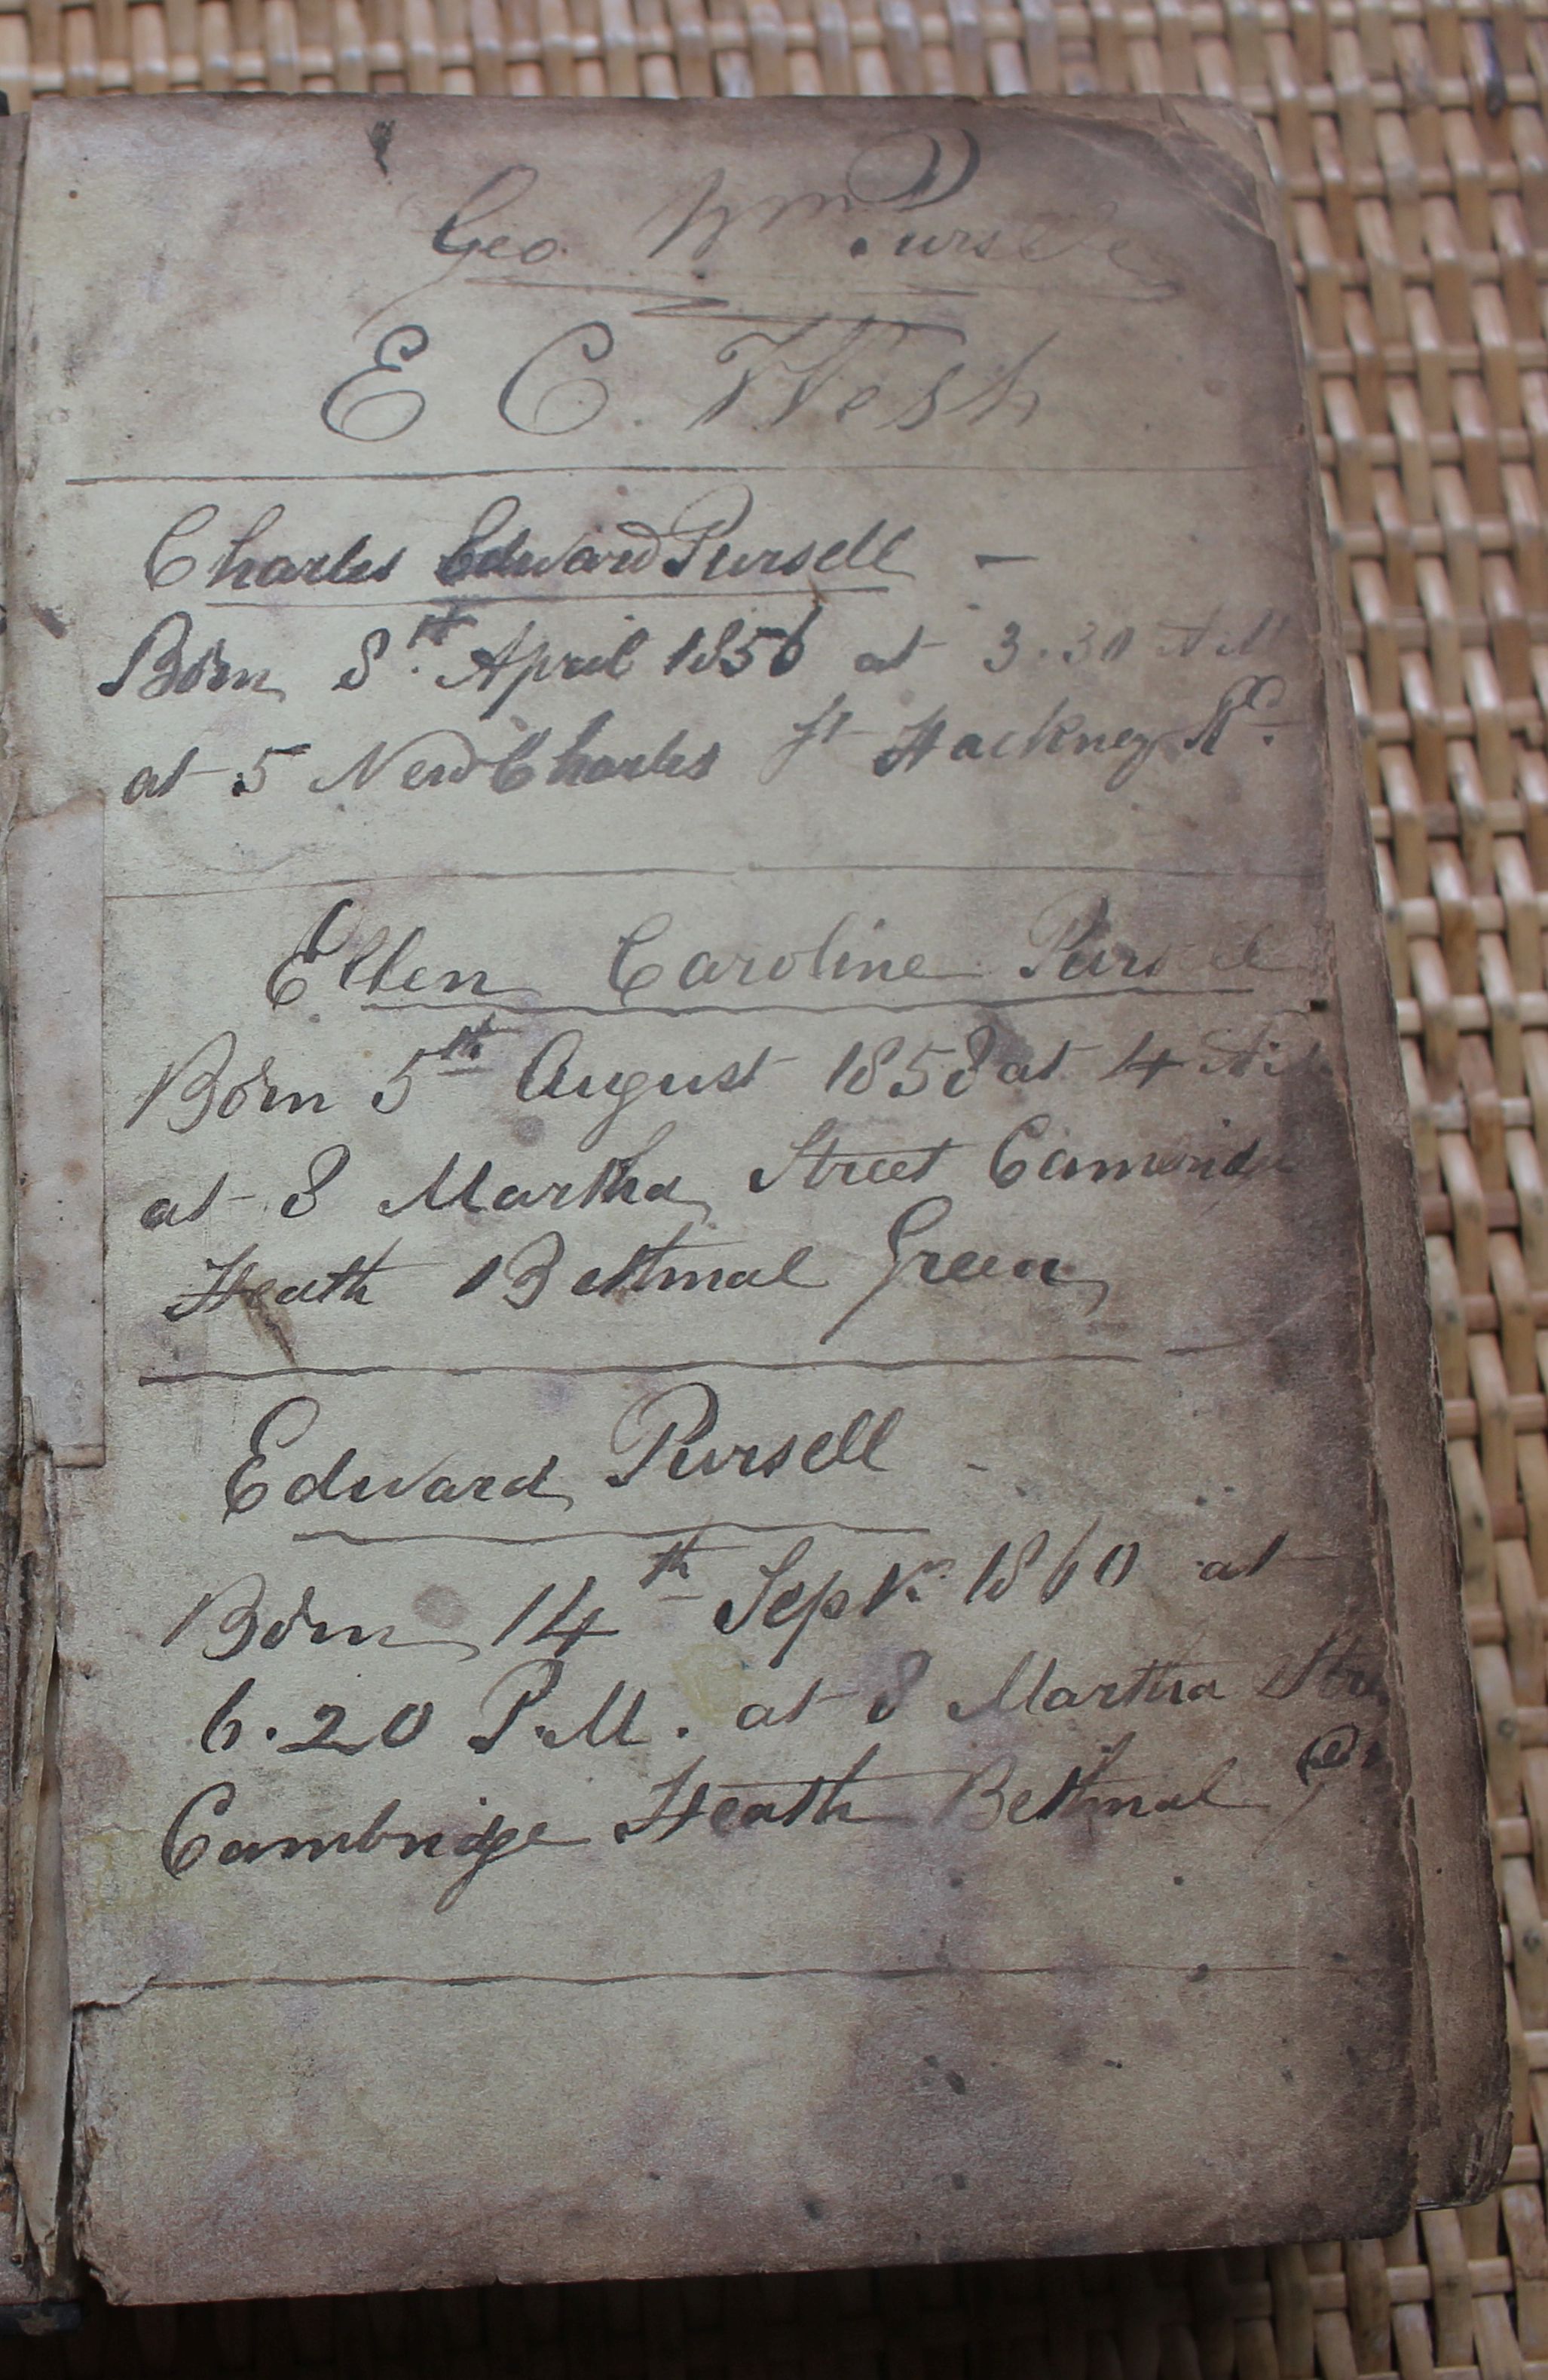 Geo. Wm. Pursell
E C. Wesh
Charles Edward Pursell —
Born 8th April 1856 at 3.30 A M
at 5 New Charles St Hackney Rd.
Ellen Caroline Pursell
Born 5th August 1858 at 4
at 8 Martha Street Cambridge
Heath Bethnal Green
Edward Pursell -
Born 14th Septr. 1860 at
6.20 P.M. at 8 Martha Stre
Cambridge Heath Bethnal